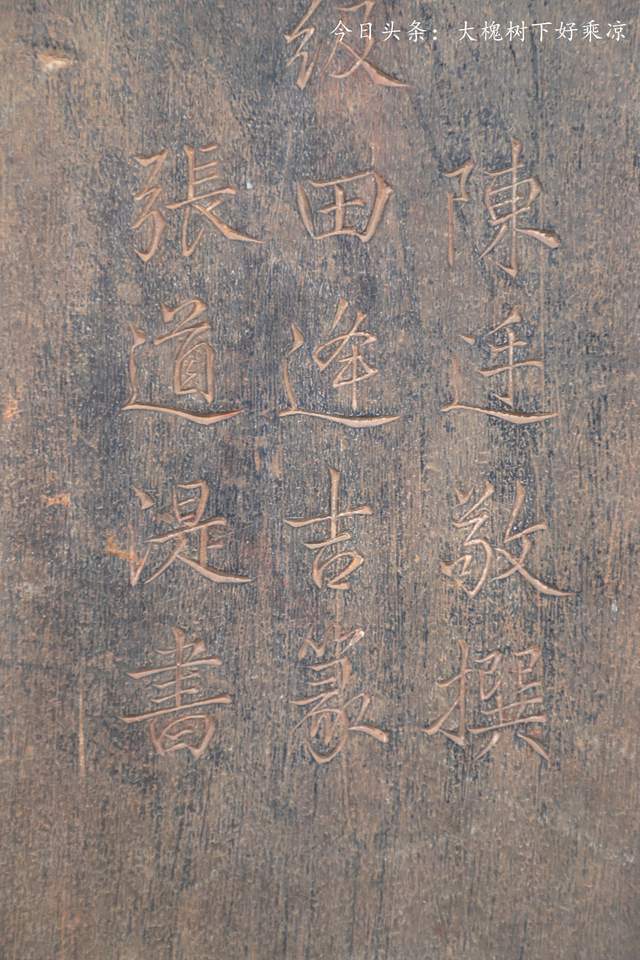 今日头条：大槐树下好乘凉
陳廷敬撰
级田逢吉篆
張道湜書